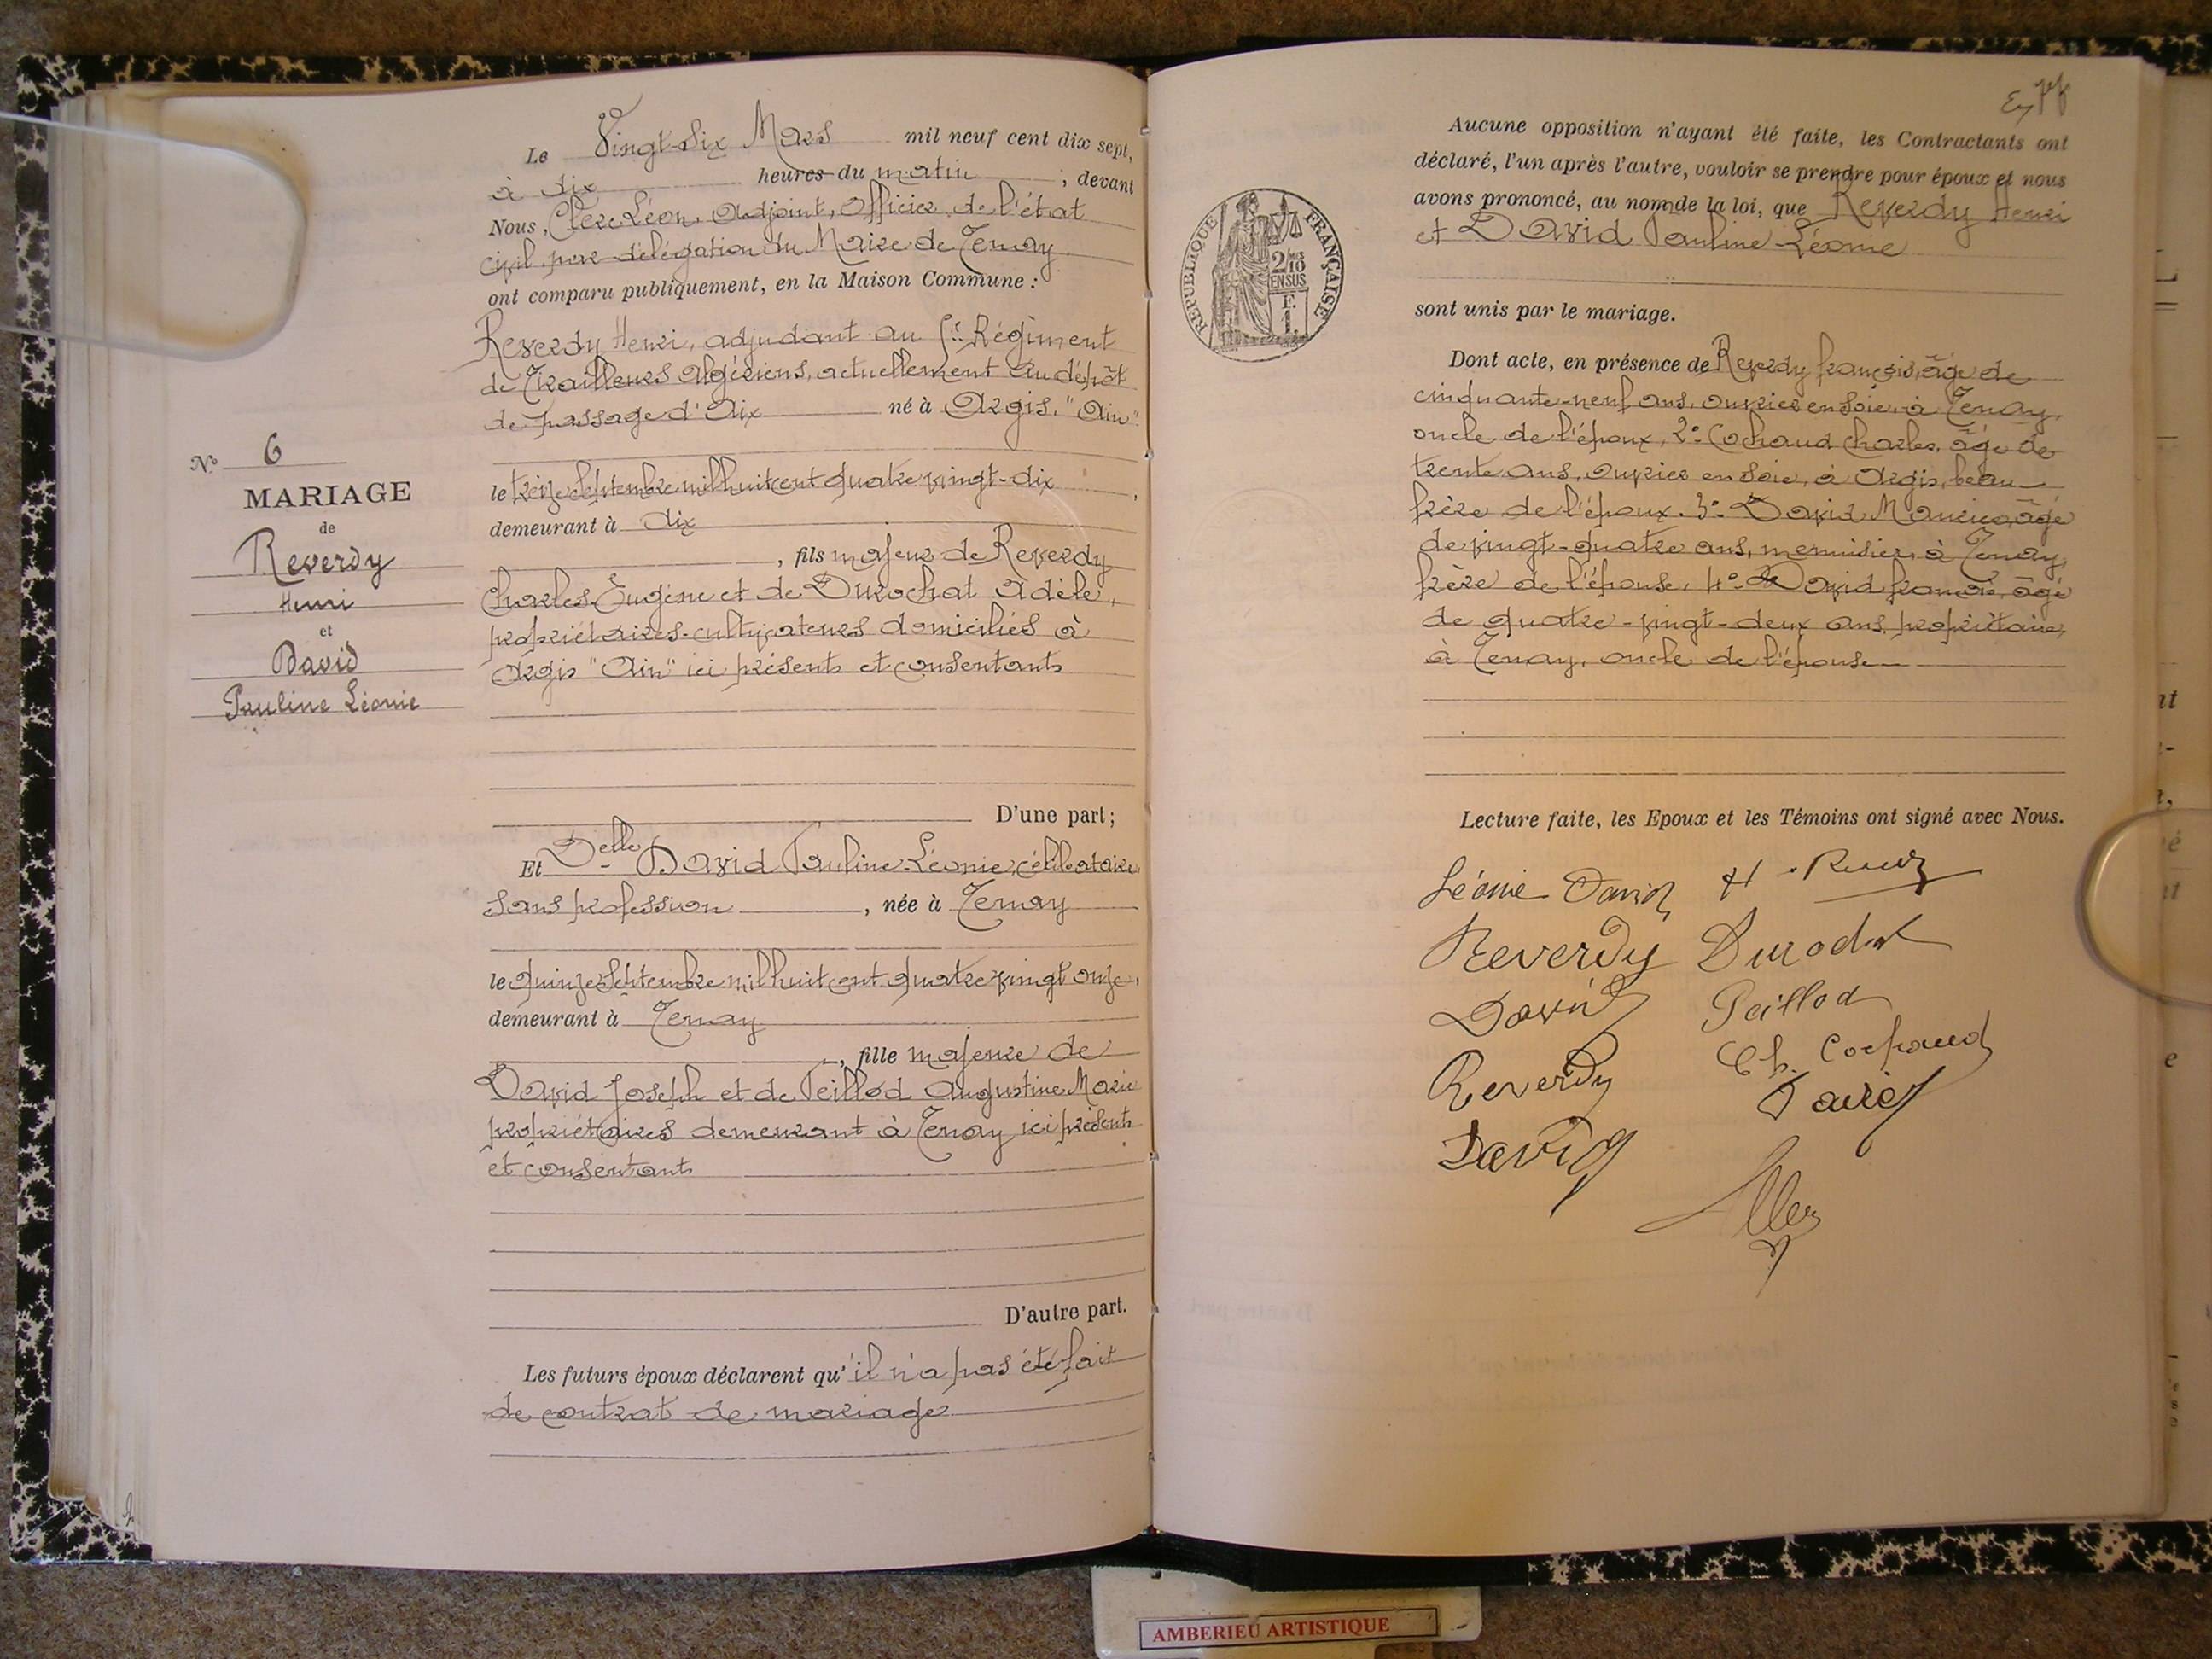 Le Vingt-Six Mars mil neuf cent dix sept,
à dix heures du matin, devant
Nous, Clerc Léon, adjoint, Officier de l'état
civil par délégation du Maire de Tenay
ont comparu publiquement, en la Maison Commune :
Reverdy Henri, adjudant au Régiment
de Tirailleurs Algériens, actuellement au dépôt
de passage d'Aix né à Argis, "Ain"
le treize Septembre mil huit cent quatre vingt-dix,
demeurant à Aix
, fils majeur de Reverdy
Charles Eugène et de Durochat Adèle,
propriétaires-cultivateurs domiciliés à
Argis "Ain" ici présents et consentants
D'une part;
Et Delle David Pauline-Léonie, célibataire
Sans profession, née à Tenay
le quinze Septembre mil huit cent quatre vingt onze,
demeurant à Tenay
, fille majeure de
David Joseph et de Peillod Augustine Marie
propriétaires demeurant à Tenay ici présents
et consentants
D'autre part.
Les futurs époux déclarent qu'il n'a pas été fait
de contrat de mariage
N° 6
MARIAGE
de
Reverdy
Henri
et
David
Pauline Léonie
Aucune opposition n'ayant été faite, les Contractants ont
déclaré, l'un après l'autre, vouloir se prendre pour époux et nous
avons prononcé, au nom de la loi, que Reverdy Henri
et David Pauline-Léonie
sont unis par le mariage.
Dont acte, en présence de Reverdy françois, âgé de
cinquante-neuf ans, ouvrier en soie, à Tenay,
oncle de l'époux, 2° Cochaud Charles, âgé de
trente ans, ouvrier en soie, à Argis, beau
frère de l'époux. 3° David Maurice, âgé
de vingt-quatre ans, menuisier, à Tenay,
frère de l'épouse, 4° David françois, âgé
de quatre-vingt-deux ans, propriétaire,
à Tenay, oncle de l'épouse
Lecture faite, les Epoux et les Témoins ont signé avec Nous.
Léonie David
Reverdy Durochat
David Peillod
Reverdy Ch. Cochaud
David David
REPUBLIQUE FRANÇAISE
2/10
EN SUS
F.
1.
AMBERIEU ARTISTIQUE